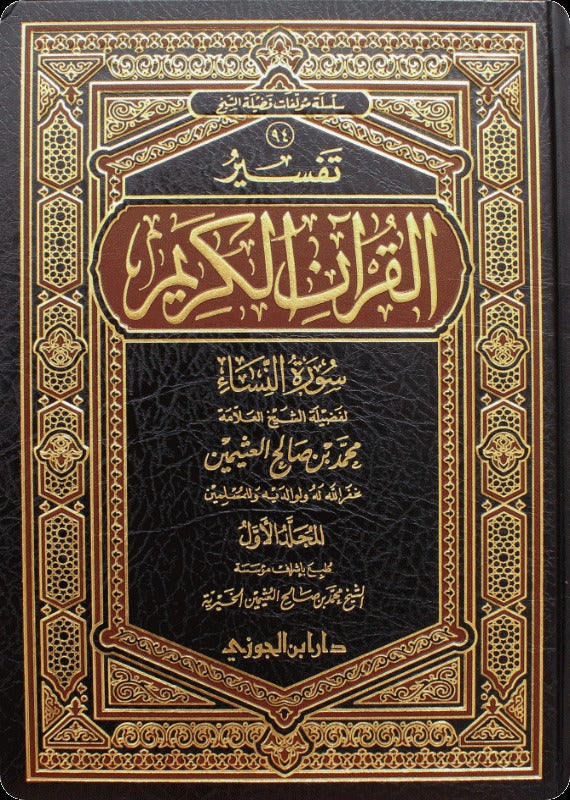 سلسلة مؤلفات فضيلة الشيخ
٩٤
تفسير
القرآن الكريم
سورة النساء
لفضيلة الشيخ العلامة
محمد بن صالح العثيمين
غفر الله له ولوالديه وللمسلمين
المجلد الأول
طبع بإشراف مؤسسة
الشيخ محمد بن صالح العثيمين الخيرية
دار ابن الجوزي